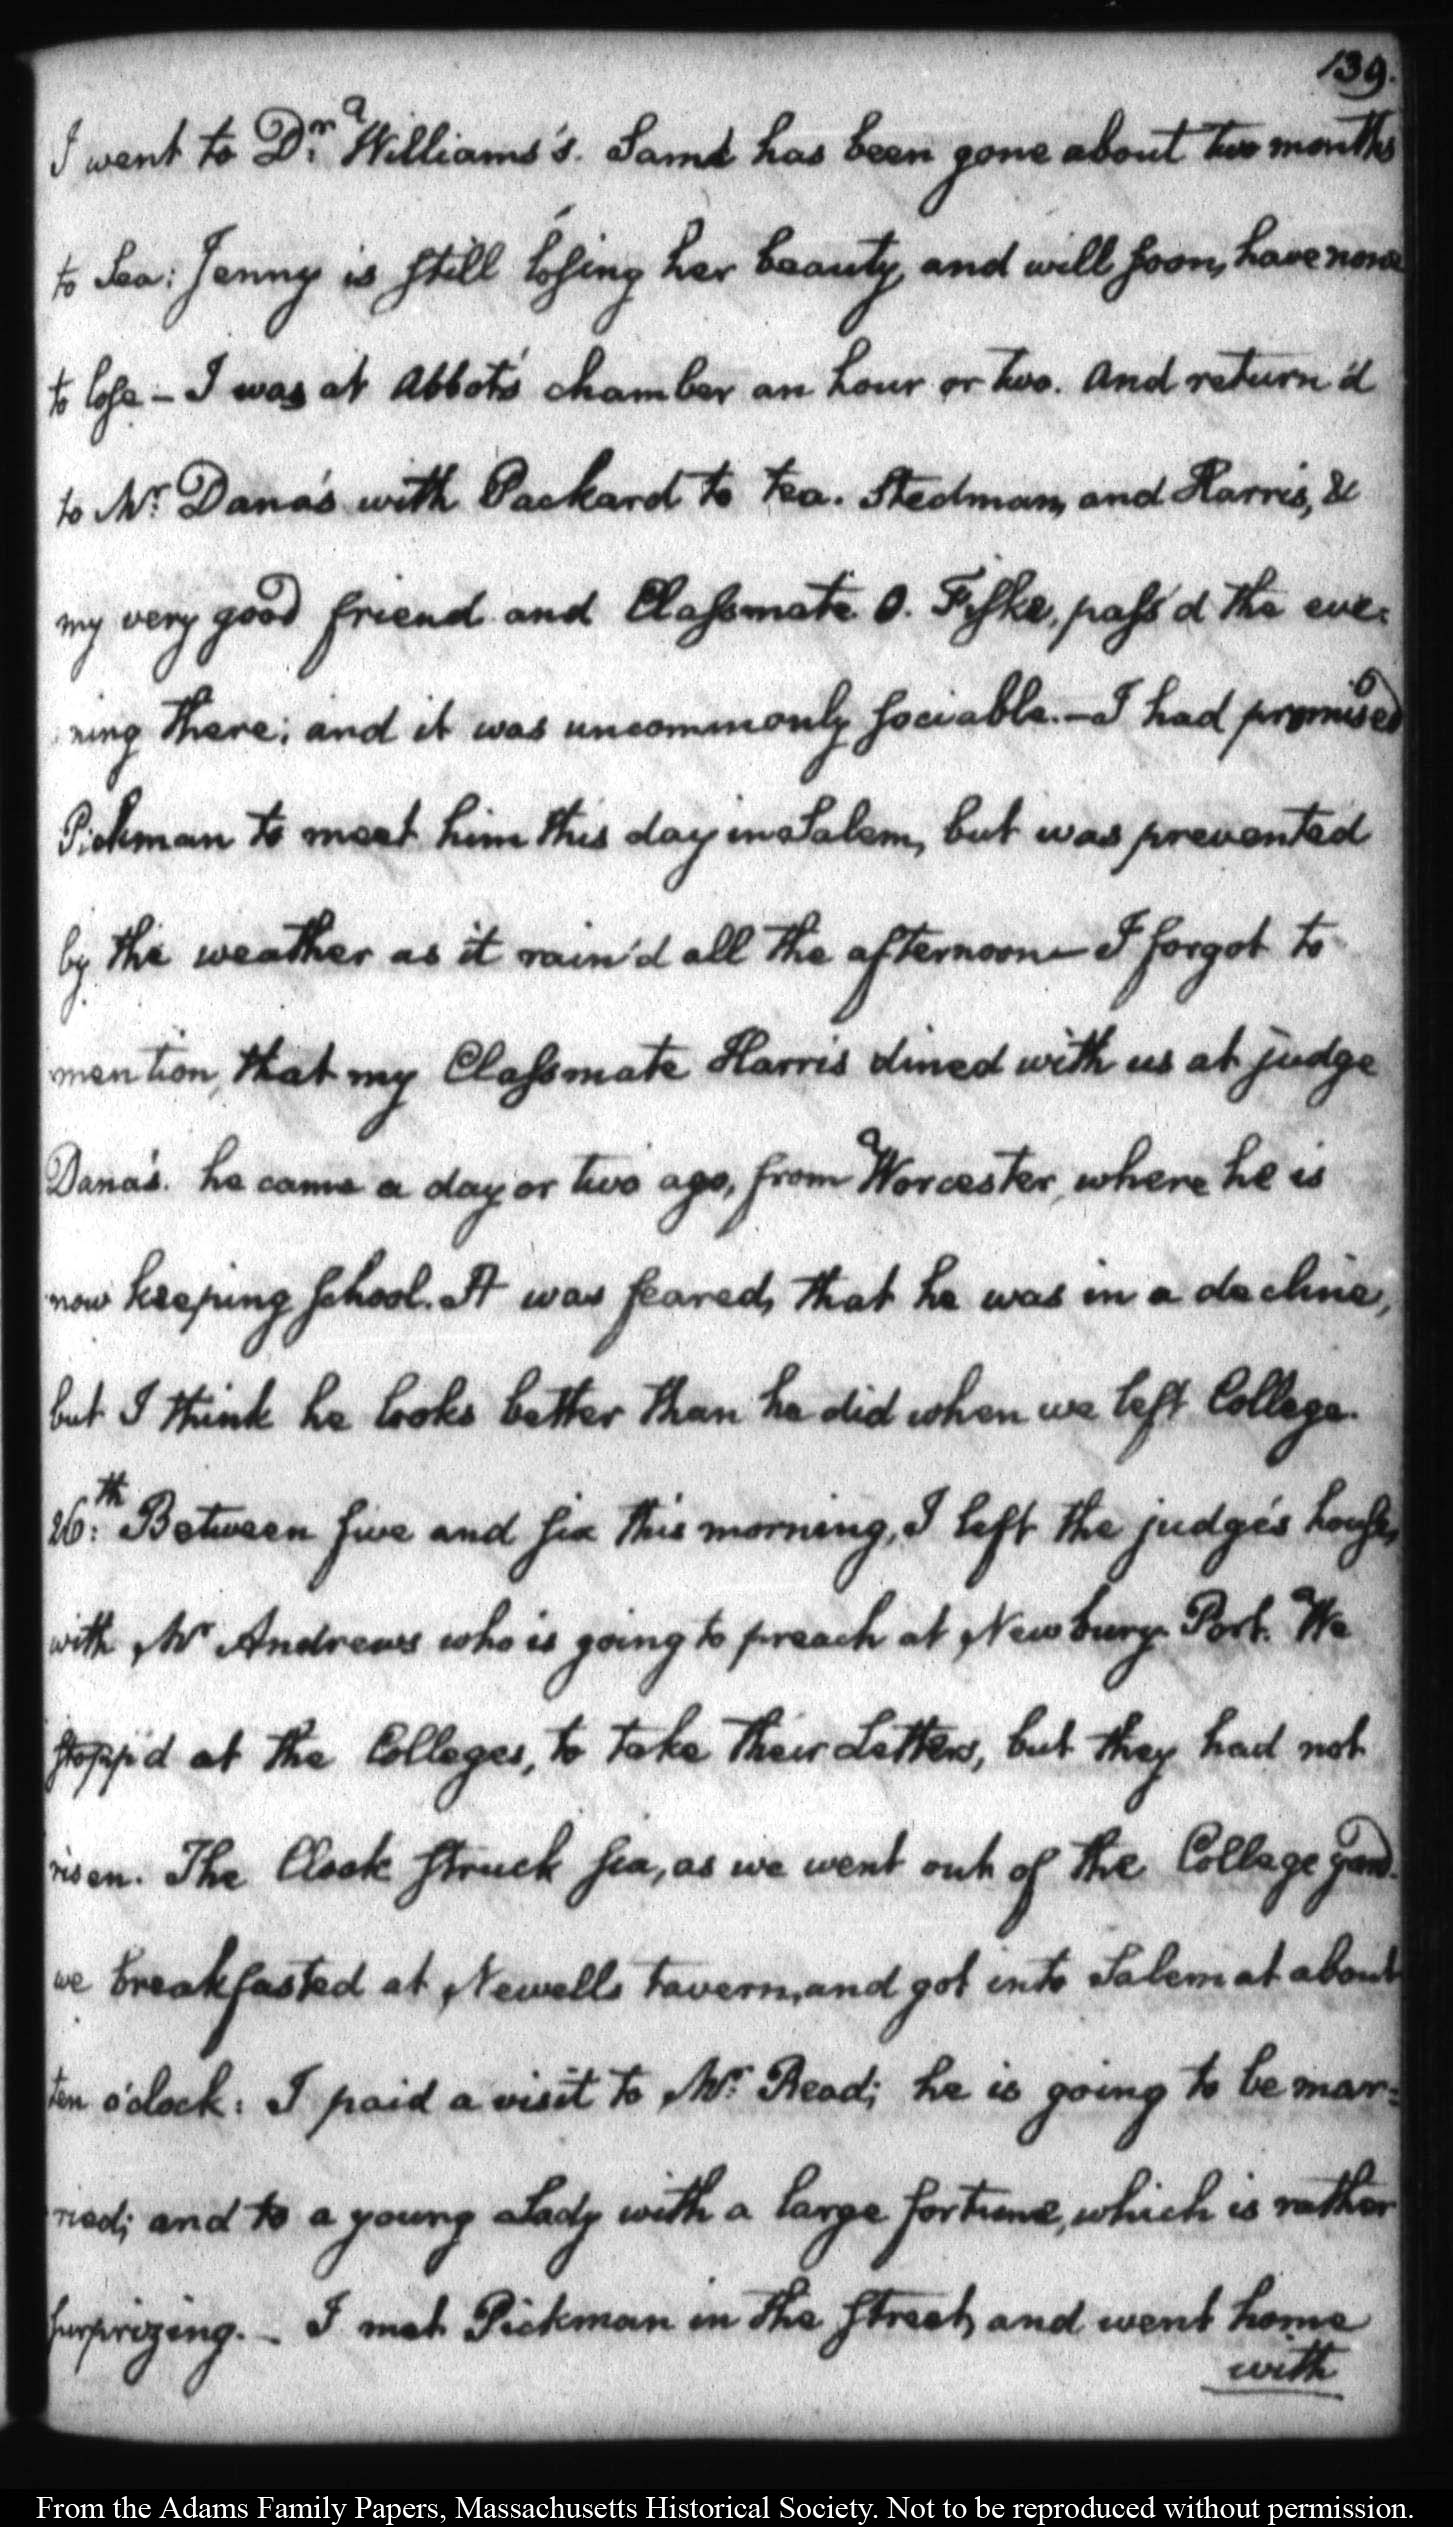 139.
I went to Dr. Williams's. Sam has been gone about two months
to Sea: Jenny is still losing her beauty, and will soon, have none
to lose — I was at Abbot's chamber an hour or two. And return'd
to Mr. Dana's with Packard to tea. Stedman, and Harris, &
my very good friend and Classmate O. Fiske, pass'd the eve:
ning there; and it was uncommonly sociable. — I had promised
Pickman to meet him this day in Salem, but was prevented
by the weather as it rain'd all the afternoon — I forgot to
mention, that my Classmate Harris dined with us at judge
Dana's. he came a day or two ago, from Worcester, where he is
now keeping school. It was feared, that he was in a decline,
but I think he looks better than he did when we left College.
26:th Between five and six this morning, I left the judge's house,
with Mr Andrews who is going to preach at Newbury-Port. We
stopp'd at the Colleges, to take their Letters, but they had not
risen. The Clock struck six, as we went out of the College yard.
we breakfasted at Newells tavern, and got into Salem at about
ten o'clock: I paid a visit to Mr. Read; he is going to be mar:
ried; and to a young Lady with a large fortune, which is rather
surprizing. — I met Pickman in the street, and went home
with
From the Adams Family Papers, Massachusetts Historical Society. Not to be reproduced without permission.